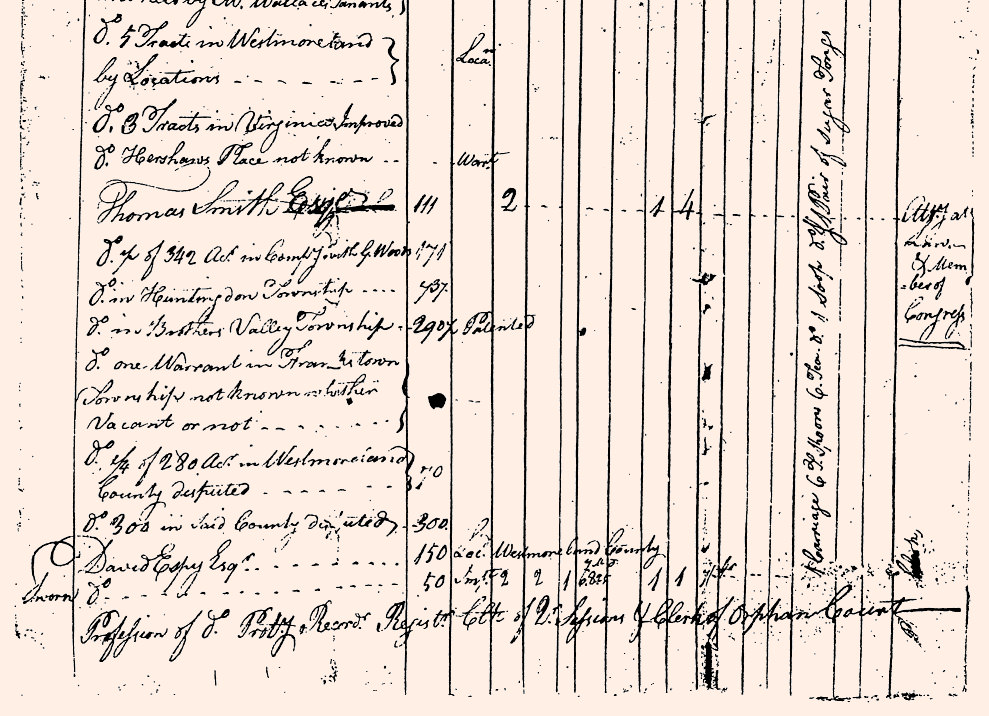 by W. Wallace Tanants
Do. 5 Tracts in Westmoreland
by Locations - - - - - Loca.n
Do. 3 Tracts in Virginia Improved
Do. Hershaws Place not known - - - - Wart
Thomas Smith Esqr 111 2 1 4
Do. of 342 Acs. in Compy with G. Woods 171
Do. in Huntingdon Township .... 737
Do. in Brothers Valley Township - 290 1/2 Patented
Do. one Warrant in Frankstown
Township not known whether
Vacant or not - - - - - - -
Do. 1/4 of 280 Acs. in Westmoreland 70
County disputed - - - - - -
Do. 300 in said County disputed - 300
David Espy Esqr. 150 Loc. Westmoreland County
Sworn Do. 50 2 2 1 1 1
Profession of Do. Proty. Recordr. Registr. Clk. of Qr. Sessions & Clerk of Orphan Court
Atty. at
Law
& Mem
-ber of
Congress
Carriage 6 T. Spoons 6 Tea do 1 Soop do 1 Pair of Sugar Tongs